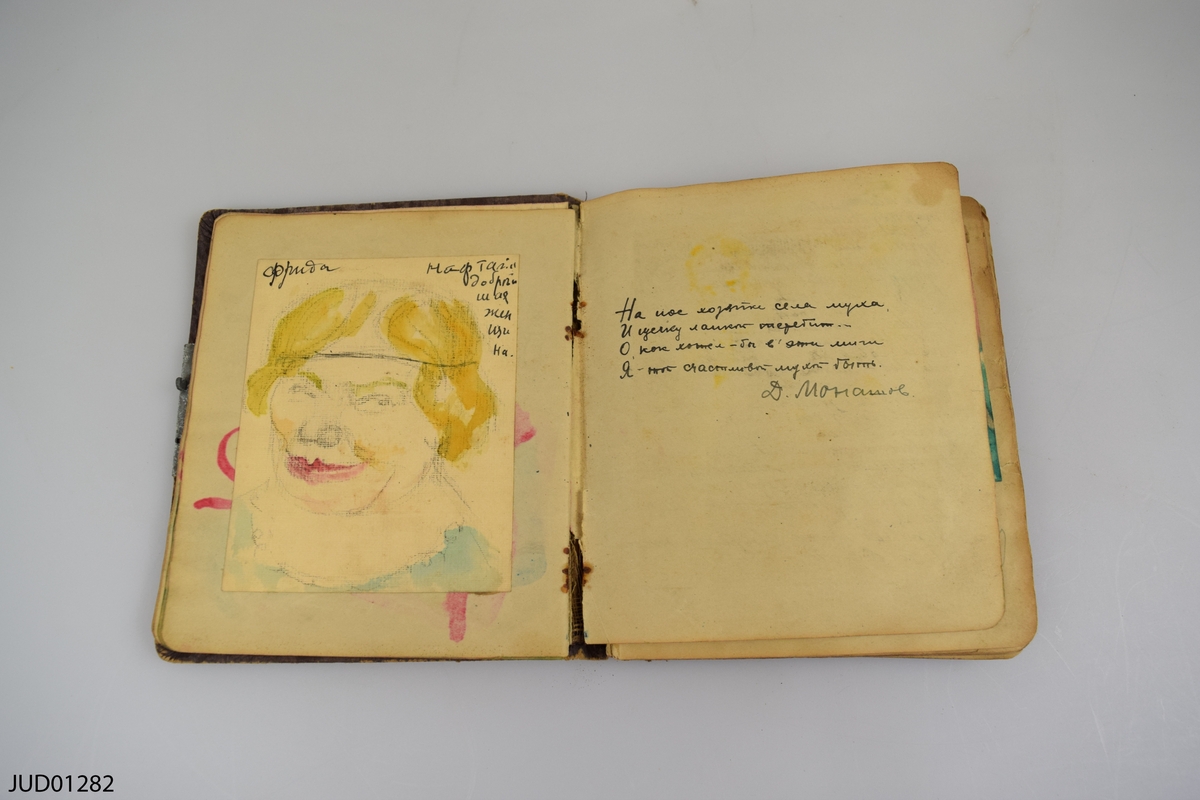 Фрида Нафтали
добрей
шая
жен
щи
на.
На нос хозяйки села муха,
И щечку лапкой теребит...
О, как хотел-бы в эти миги
Я - той счастливой мухой быть.
Д. Монашов
JUD01282